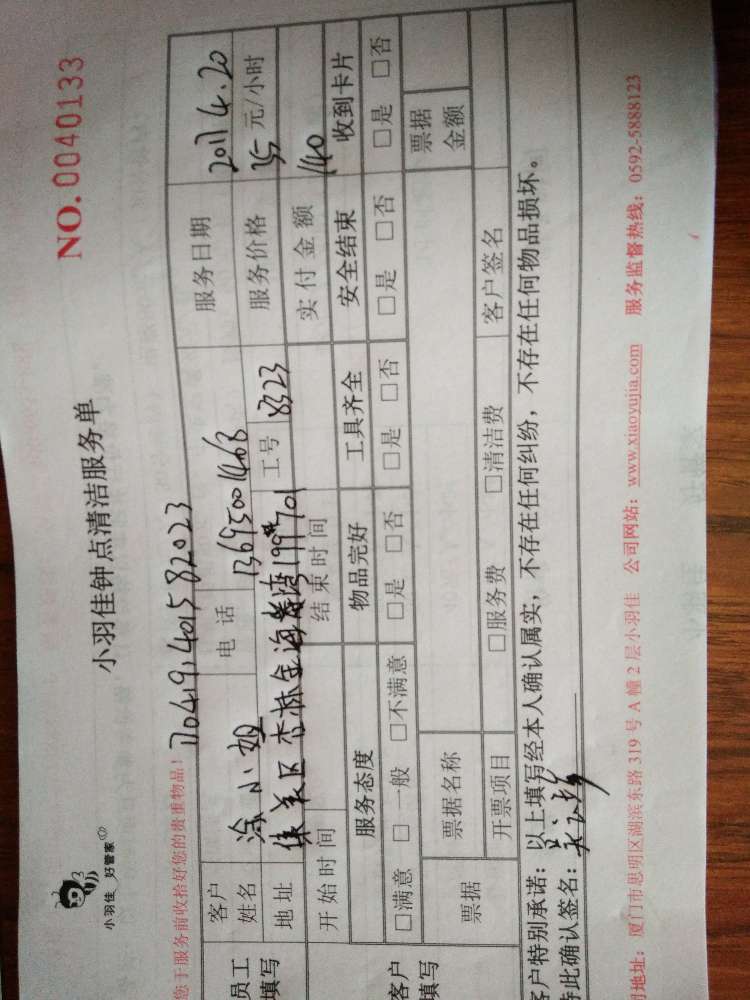 小羽佳 好管家
小羽佳钟点清洁服务单
NO. 0040133
您于服务前收拾好您的贵重物品!
170419,401582023
员工
填写
客户
姓名
涂小姐
电 话
13695001463
服务日期
2017 4.20
地 址
集美区杏林金海湾
工号
8323
服务价格
35 元/小时
开始时间
结束时间
实付金额
140
客户
填写
服务态度
物品完好
工具齐全
安全结束
收到卡片
□满意 □一般 □不满意
□是 □否
□是 □否
□是 □否
□是 □否
票据
票据名称
票据
金额
开票项目
□服务费 □清洁费
客户签名
客户特别承诺:以上填写经本人确认属实,不存在任何纠纷,不存在任何物品损坏。
特此确认签名:
司地址:厦门市思明区湖滨东路 319 号 A 幢 2 层小羽佳 公司网站:www.xiaoyujia.com 服务监督热线:0592-5888123